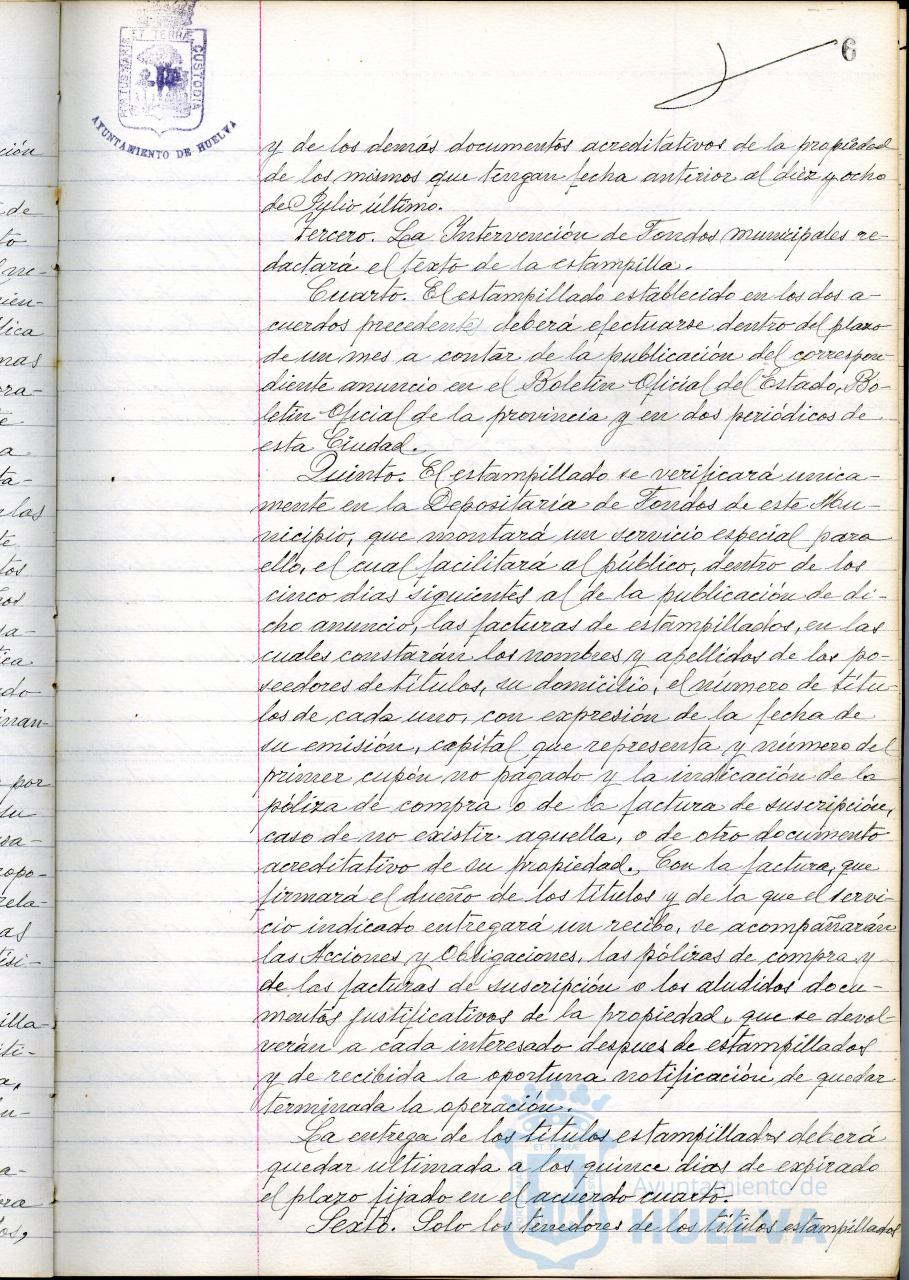 6
PORTUS MARIS ET TERRÆ CUSTODIA
AYUNTAMIENTO DE HUELVA
y de los demás documentos acreditativos de la propiedad
de los mismos que tengan fecha anterior al diez y ocho
de Julio último.
Tercero. La Intervención de Fondos municipales re-
dactará el texto de la estampilla.
Cuarto. El estampillado establecido en los dos a-
cuerdos precedentes deberá efectuarse dentro del plazo
de un mes a contar de la publicación del correspon-
diente anuncio en el Boletin Oficial del Estado, Bo-
letin Oficial de la provincia y en dos periódicos de
esta Ciudad.
Quinto. El estampillado se verificará unica-
mente en la Depositaría de Fondos de este Mu-
nicipio, que montará un servicio especial para
ello, el cual facilitará al público, dentro de los
cinco dias siguientes al de la publicación de di-
cho anuncio, las facturas de estampillados, en las
cuales constarán los nombres y apellidos de los po-
seedores de títulos, su domicilio, el número de títu-
los de cada uno, con expresión de la fecha de
su emisión, capital que representa y número del
primer cupón no pagado y la indicación de la
póliza de compra o de la factura de suscripción,
caso de no existir aquella, o de otro documento
acreditativo de su propiedad. Con la factura, que
firmará el dueño de los títulos y de la que el servi-
cio indicado entregará un recibo, se acompañarán
las Acciones y Obligaciones, las pólizas de compra y
de las facturas de suscripción o los aludidos docu-
mentos justificativos de la propiedad, que se devol-
verán a cada interesado despues de estampillados
y de recibida la oportuna notificación de quedar
terminada la operación.
La entrega de los títulos estampillados deberá
quedar ultimada a los quince dias de expirado
el plazo fijado en el acuerdo cuarto.
Sexto. Solo los tenedores de los títulos estampillados
Ayuntamiento de
HUELVA